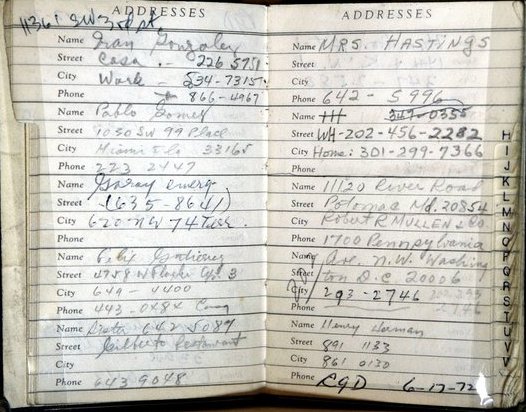 ADDRESSES
1136 SW 3rd
Name Gonzalez
Street Casa - 226 5751
City Work - 534-7315
Phone 866-4967
Name Pablo Gomez
Street 1050 SW 99 Place
City Miami Fla 33165
Phone 223 2447
Name Garay
Street (635-8641)
City 620 NW 74
Phone
Name Felix Gutierrez
Street 3
City 649-4400
Phone 443-0484
Name 642 5089
Street Gilberto Restaurant
City
Phone 643 9048
ADDRESSES
Name MRS. HASTINGS
Street
City
Phone 642-5996
Name HH 347-0355
Street WH-202-456-2282
City Home: 301-299-7366
Phone
Name 11120 River Road
Street Potomac Md. 20854
City Robert R MULLEN & CO
Phone 1700 Pennsylvania
Name Ave. N.W. Washing
Street ton D.C 20006
City 293-2746
Phone
Name Henry
Street 891 1133
City 861 0130
Phone 6-17-72
H
I
J
K
L
M
N
O
P
Q
R
S
T
U
V